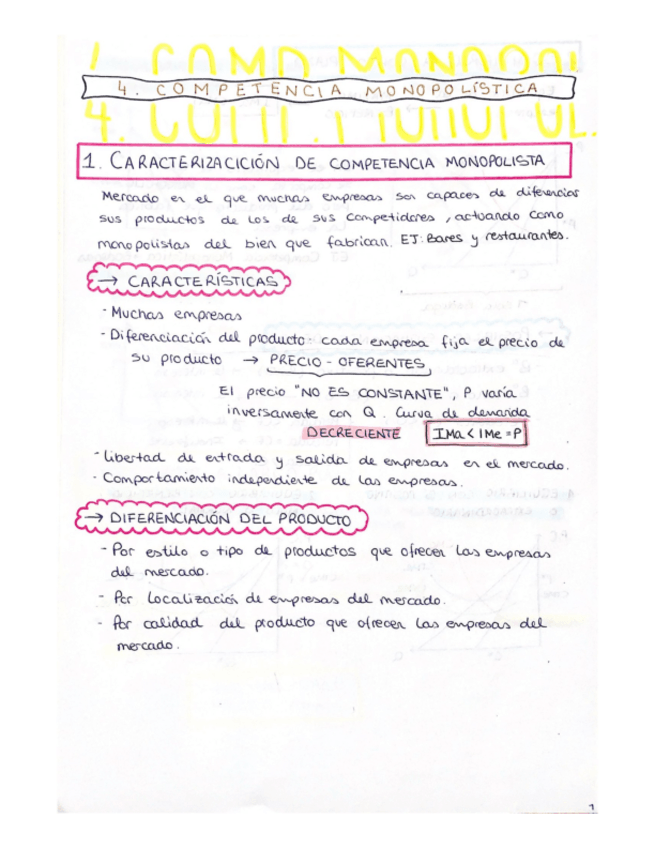 4. COMPETENCIA MONOPOLÍSTICA
1. CARACTERIZACICIÓN DE COMPETENCIA MONOPOLISTA
Mercado en el que muchas empresas son capaces de diferenciar
sus productos de los de sus competidores, actuando como
monopolistas del bien que fabrican. EJ: Bares y restaurantes.
→ CARACTERÍSTICAS
- Muchas empresas
- Diferenciación del producto: cada empresa fija el precio de
su producto → PRECIO - OFERENTES
El precio "NO ES CONSTANTE", P varía
inversamente con Q. Curva de demanda
DECRECIENTE IMa < IMe = P
- Libertad de entrada y salida de empresas en el mercado.
- Comportamiento independiente de las empresas.
→ DIFERENCIACIÓN DEL PRODUCTO
- Por estilo o tipo de productos que ofrecen las empresas
del mercado.
- Por localización de empresas del mercado.
- Por calidad del producto que ofrecen las empresas del
mercado.
1